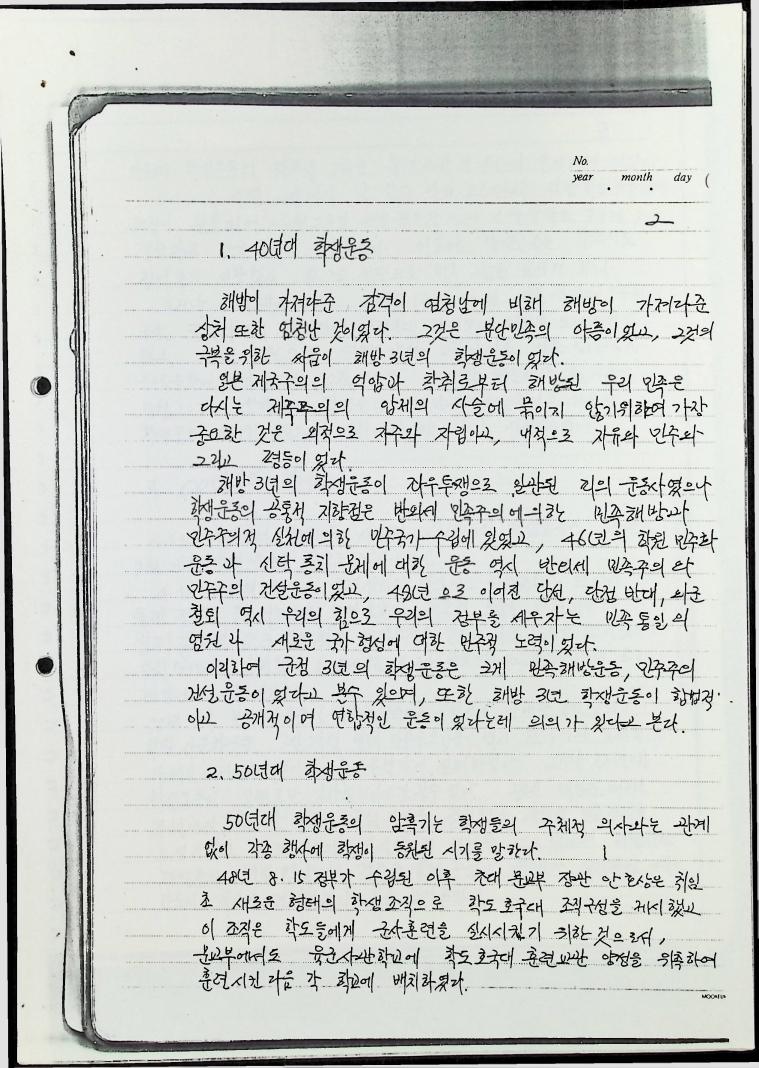 No.
year month day (
2
1. 40년대 학생운동
해방이 가져다준 감격이 엄청남에 비해 해방이 가져다준
상처 또한 엄청난 것이었다. 그것은 분단민족의 아픔이었고, 그것의
극복을 위한 싸움이 해방 3년의 학생운동이었다.
일본 제국주의의 억압과 착취로부터 해방된 우리 민족은
다시는 제국주의의 압제의 사슬에 묶이지 않기위하여 가장
중요한 것은 외적으로 자주와 자립이고, 내적으로 자유와 민주와
그리고 평등이었다.
해방 3년의 학생운동이 좌우투쟁으로 일관된 의 운동사였으나
학생운동의 공통적 지향점은 반외세 민족주의에의한 민족해방과
민주주의적 실천에 의한 민주국가 수립에 있었고, 46년의 학원 민주화
운동과 신탁 통치 문제에 대한 운동 역시 반외세 민족주의와
민주주의 건설운동이었고, 48년으로 이어진 단선, 단정 반대, 외군
철퇴 역시 우리의 힘으로 우리의 정부를 세우자는 민족 통일의
염원과 새로운 국가형성에 대한 민주적 노력이었다.
이리하여 군정 3년의 학생운동은 크게 민족해방운동, 민주주의
건설운동이었다고 볼수 있으며, 또한 해방 3년 학생운동이 합법적
이고 공개적이며 연합적인 운동이었다는데 의의가 있다고 본다.
2. 50년대 학생운동
50년대 학생운동의 암흑기는 학생들의 주체적 의사와는 관계
없이 각종 행사에 학생이 동원된 시기를 말한다.
48년 8.15 정부가 수립된 이후 초대 문교부 장관 안호상은 취임
초 새로운 형태의 학생조직으로 학도호국대 조직구성을 제시했고
이 조직은 학도들에게 군사훈련을 실시시키기 위한 것으로서,
문교부에서도 육군사관학교에 학도호국대 훈련교관 양성을 위촉하여
훈련시킨 다음 각 학교에 배치하였다.